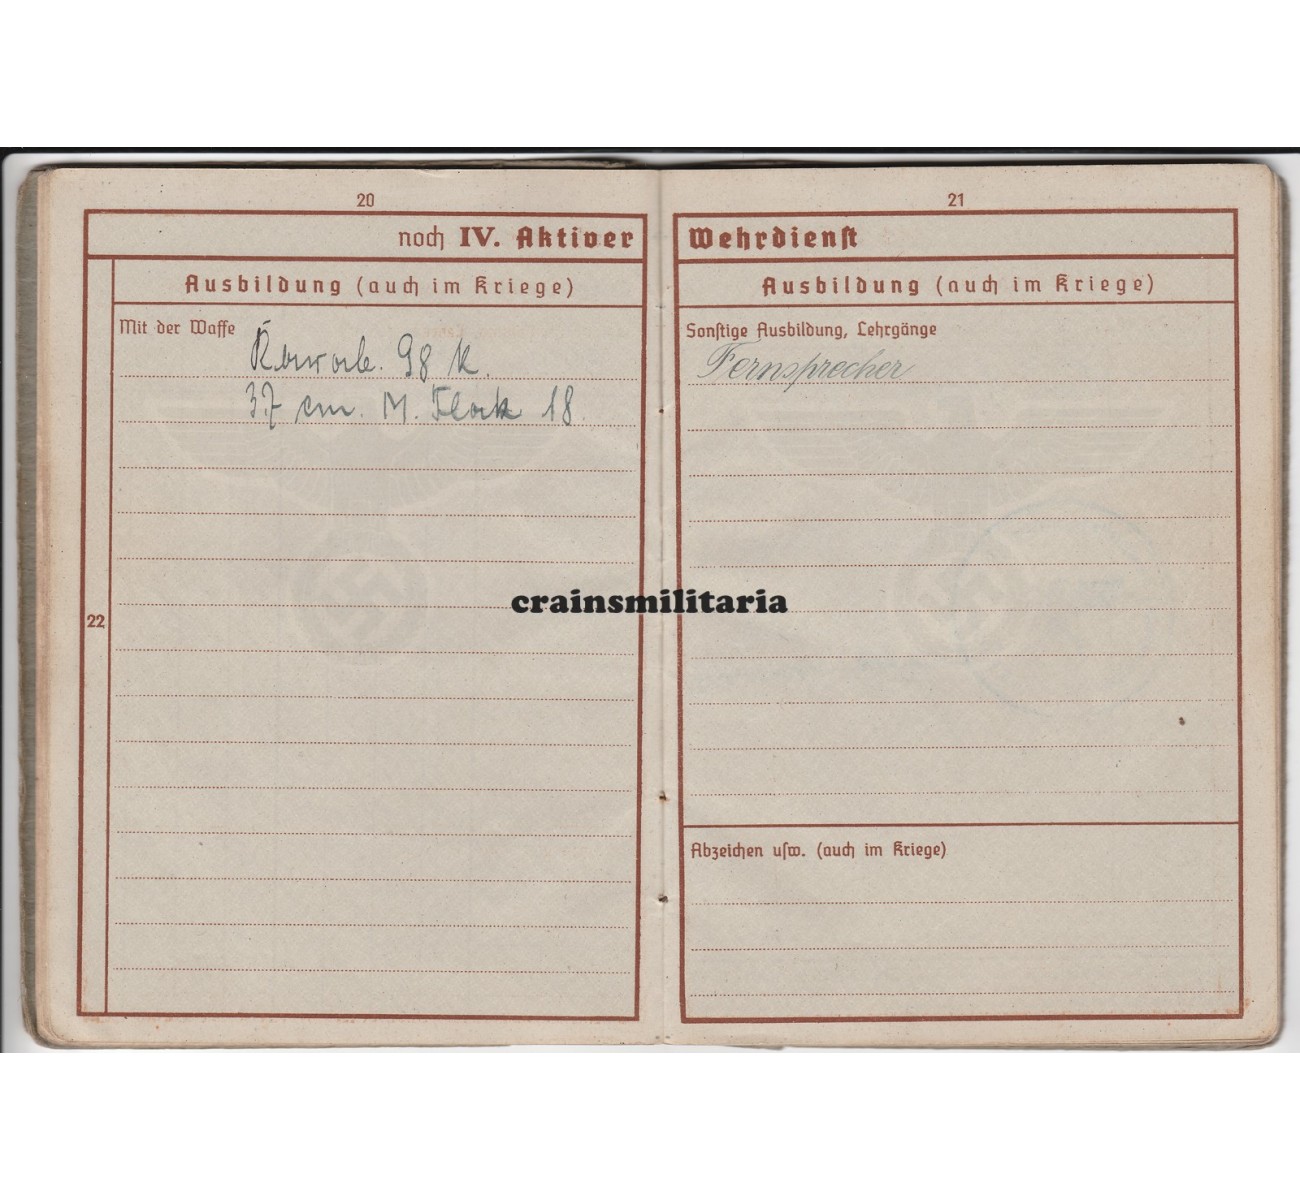 20
noch IV. Aktiver
Ausbildung (auch im Kriege)
Mit der Waffe
98 K.
37 cm. M. Flak 18
22
21
Wehrdienst
Ausbildung (auch im Kriege)
Sonstige Ausbildung, Lehrgänge
Fernsprecher
Abzeichen usw. (auch im Kriege)
crainsmilitaria